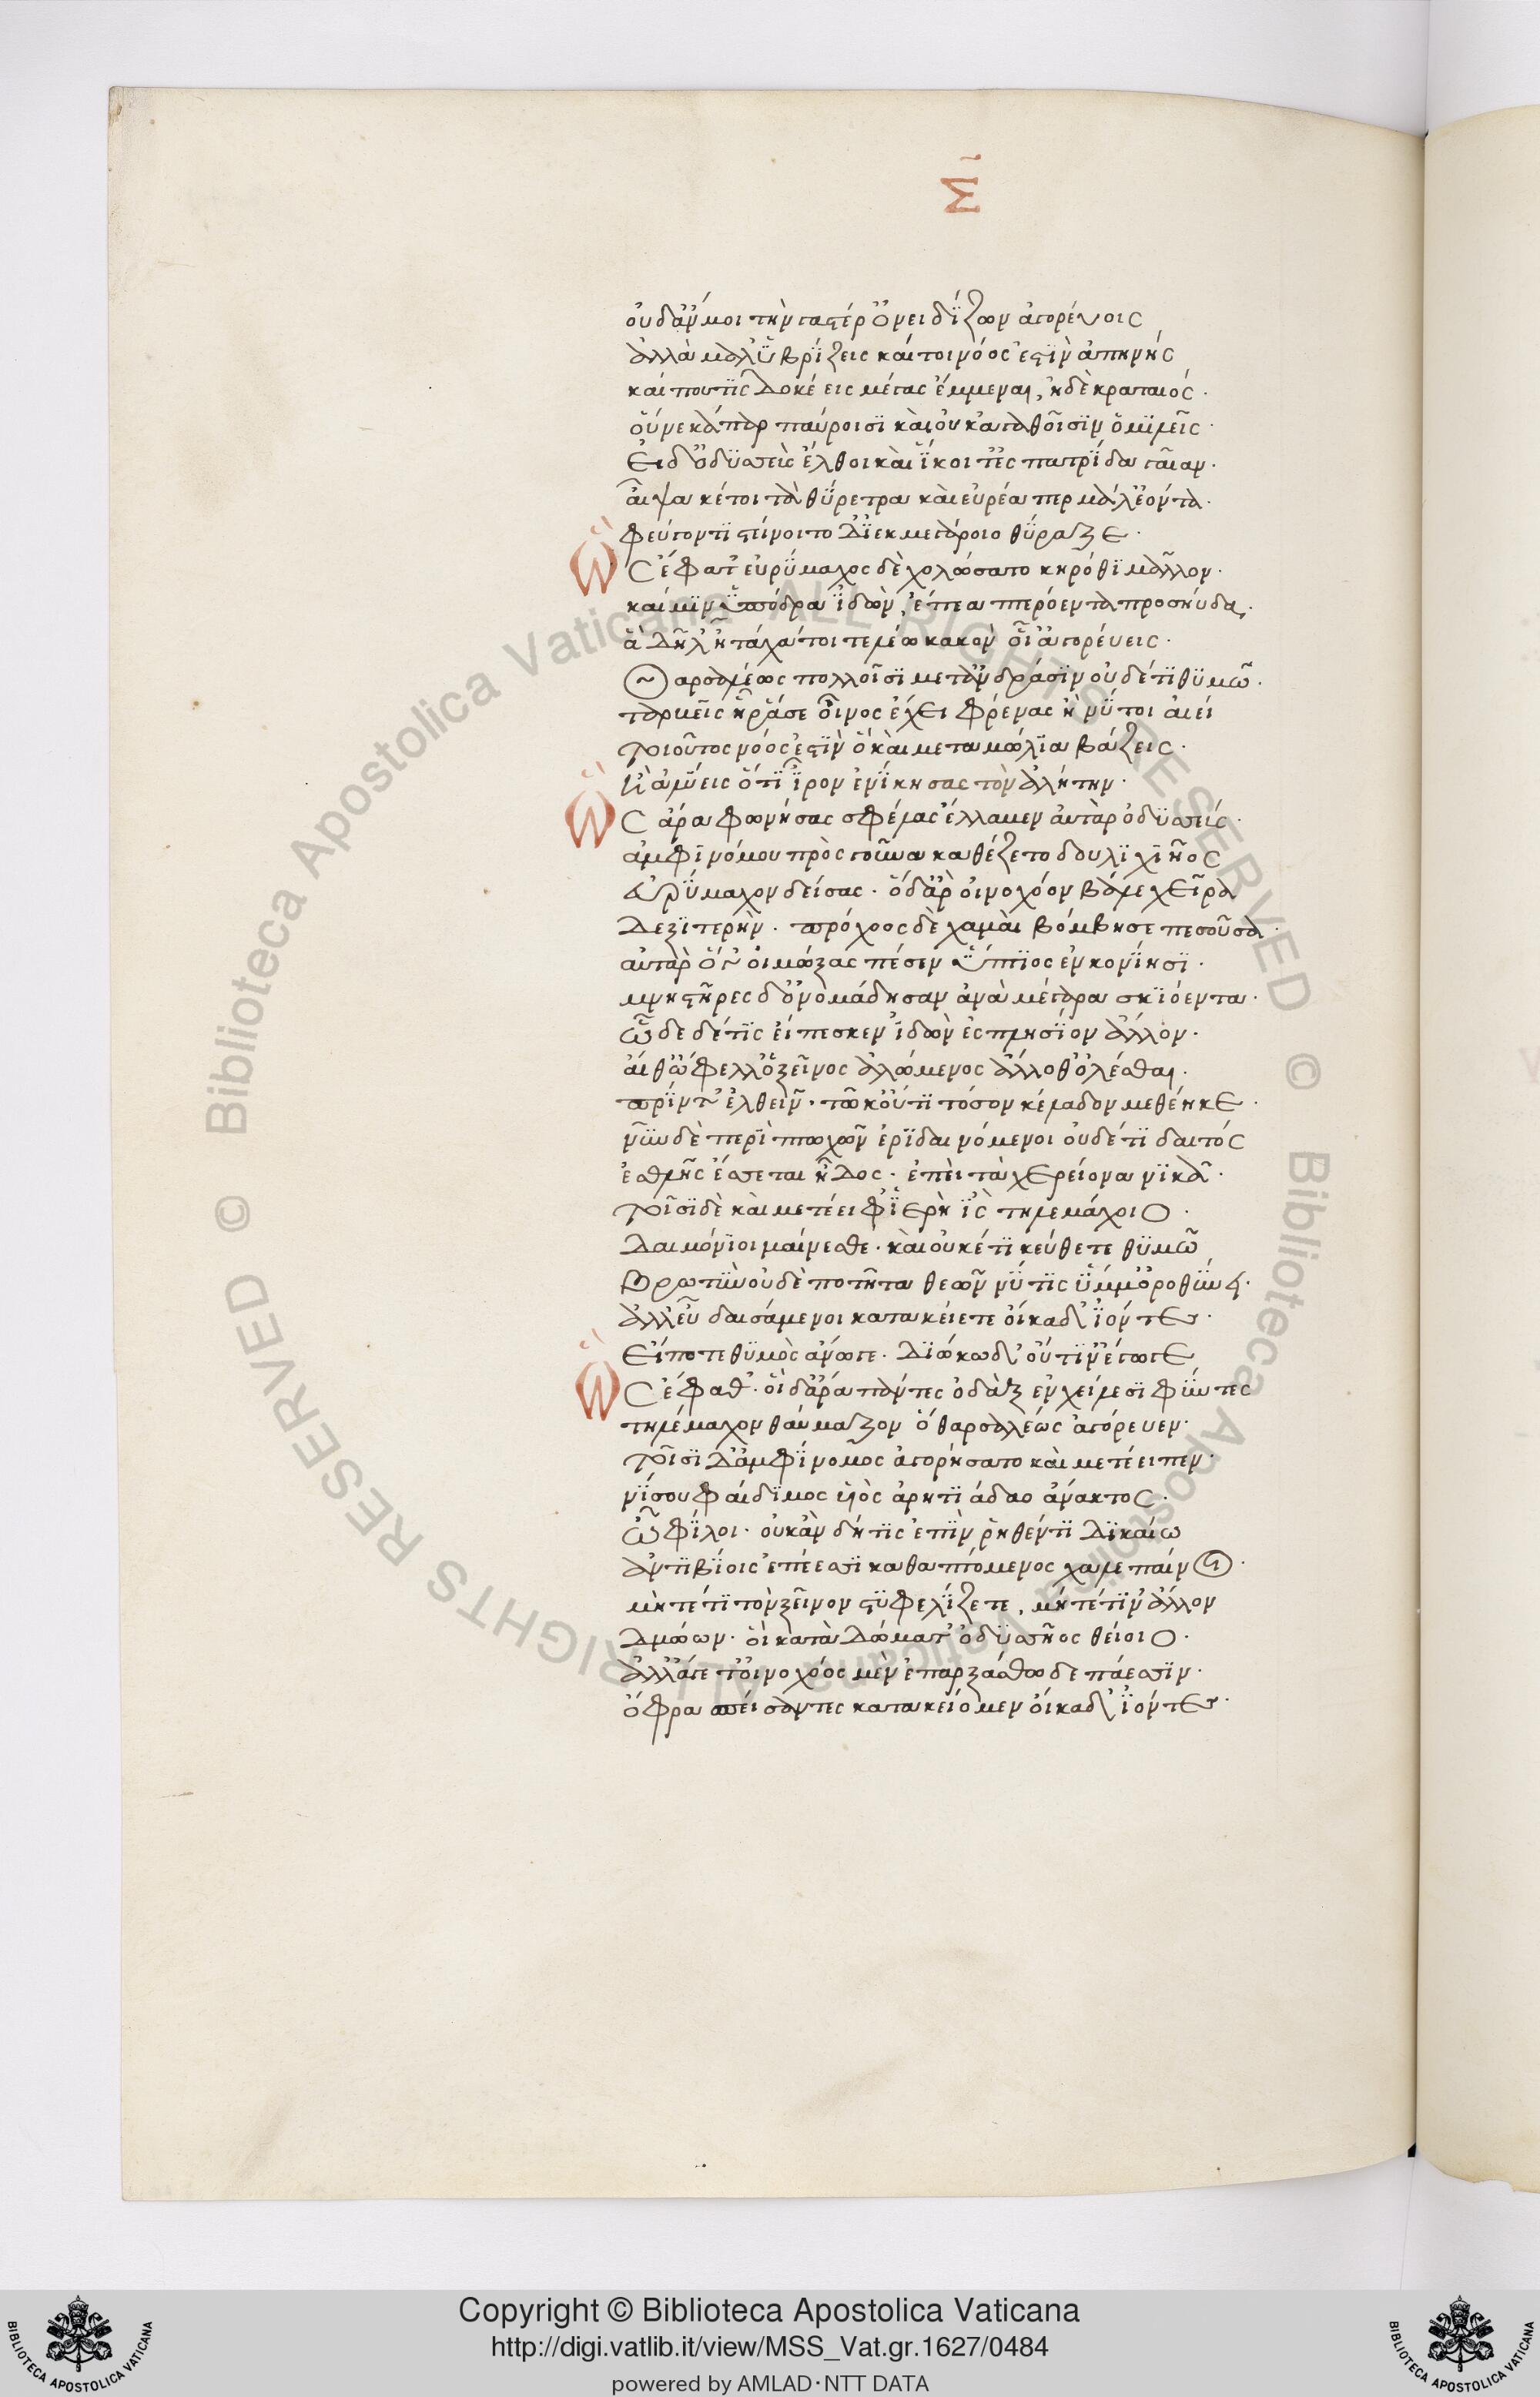 Σ
οὐδ' ἄν μοι τὴν γαστέρ' ὀνειδίζων ἀγορεύοις
ἀλλὰ μάλ' ὑβρίζεις καί τοι νόος ἐστὶν ἀπηνής
καί που τὶς δοκέεις μέγας ἔμμεναι, ἠδὲ κραταιός.
οὕνεκα πὰρ παύροισι καὶ οὐκ ἀγαθοῖσιν ὁμιλεῖς.
Εἰ δ' ὀδυσσεὺς ἔλθοι καὶ ἵκοιτ' ἐς πατρίδα γαῖαν.
αἶψα κέ τοι τὰ θύρετρα καὶ εὐρέα περ μάλ' ἐόντα.
φεύγοντι στείνοιτο διὲκ μεγάροιο θύραζε.
Ὣς ἔφατ' εὐρύμαχος δὲ χολώσατο κηρόθι μᾶλλον.
καί μιν ὑπόδρα ἰδὼν, ἔπεα πτερόεντα προσηύδα,.
ἆ δείλ' ἦ τάχα τοι τελέω κακὸν οἷ' ἀγορεύεις.
Θαρσαλέως πολλοῖσι μετ' ἀνδράσιν οὐδέ τι θυμῶ.
ταρβεῖς ἦρά σε οἶνος ἔχει φρένας ἤ νύ τοι αἰεί
τοιοῦτος νόος ἐστὶν ὃ καὶ μεταμώλια βάζεις.
ἦ ἀλύεις ὅτι ἶρον ἐνίκησας τὸν ἀλήτην.
Ὣς ἄρα φωνήσας σφέλας ἔλλαβεν αὐτὰρ ὀδυσσεύς.
ἀμφινόμου πρὸς γοῦνα καθέζετο δουλιχιῆος
εὐρύμαχον δείσας. ὃ δ' ἄρ' οἰνοχόον βάλε χεῖρα
δεξιτερήν. πρόχοος δὲ χαμαὶ βόμβησε πεσοῦσα.
αὐτὰρ ὅγ' οἰμώξας πέσεν ὕπτιος ἐν κονίησι.
μνηστῆρες δ' ὁμάδησαν ἀνὰ μέγαρα σκιόεντα.
ὧδε δέ τις εἴπεσκεν ἰδὼν ἐς πλησίον ἄλλον.
αἴθ' ὤφελλ' ὁ ξεῖνος ἀλώμενος ἄλλοθ' ὀλέσθαι.
πρίν γ' ἐλθεῖν. τῶ κ' οὔτι τόσον κέλαδον μεθέηκε.
νῦν δὲ περὶ πτωχῶν ἐριδαίνομεν οὐδέ τι δαιτός
ἐσθλῆς ἔσσεται ἦδος. ἐπεὶ τὰ χερείονα νικᾶ.
τοῖσι δὲ καὶ μετέειφ' ἱερὴ ἲς τηλεμάχοιο.
δαιμόνιοι μαίνεσθε. καὶ οὐκέτι κεύθετε θυμῶ
βρωτὺν οὐδὲ ποτῆτα θεῶν νύ τις ὔμμ' ὀροθύνει.
ἀλλ' εὖ δαισάμενοι κατακείετε οἴκαδ' ἰόντες.
Εἴποτε θυμὸς ἀνώγε. διώκω δ' οὔτιν' ἔγωγε
Ὣς ἔφαθ'. οἱ δ' ἄρα πάντες ὀδὰξ ἐν χείλεσι φύντες
τηλέμαχον θαύμαζον ὃ θαρσαλέως ἀγόρευεν.
τοῖσι δ' ἀμφίνομος ἀγορήσατο καὶ μετέειπεν.
νίσου φαίδιμος υἱὸς ἀρητιάδαο ἄνακτος.
ὦ φίλοι. οὐκ ἂν δή τις ἐπὶν ῥηθέντι δικαίω
ἀντιβίοις ἐπέεσσι καθαπτόμενος χαλεπαίνοι.
μήτέ τι τὸν ξεῖνον στυφελίζετε, μήτέ τιν' ἄλλον
δμώων. οἳ κατὰ δώματ' ὀδυσσῆος θείοιο.
ἀλλ' ἄγετ' οἰνοχόος μὲν ἐπαρξάσθω δεπάεσσιν.
ὄφρα σπείσαντες κατακείομεν οἴκαδ' ἰόντες.
Copyright © Biblioteca Apostolica Vaticana
http://digi.vatlib.it/view/MSS_Vat.gr.1627/0484
powered by AMLAD·NTT DATA